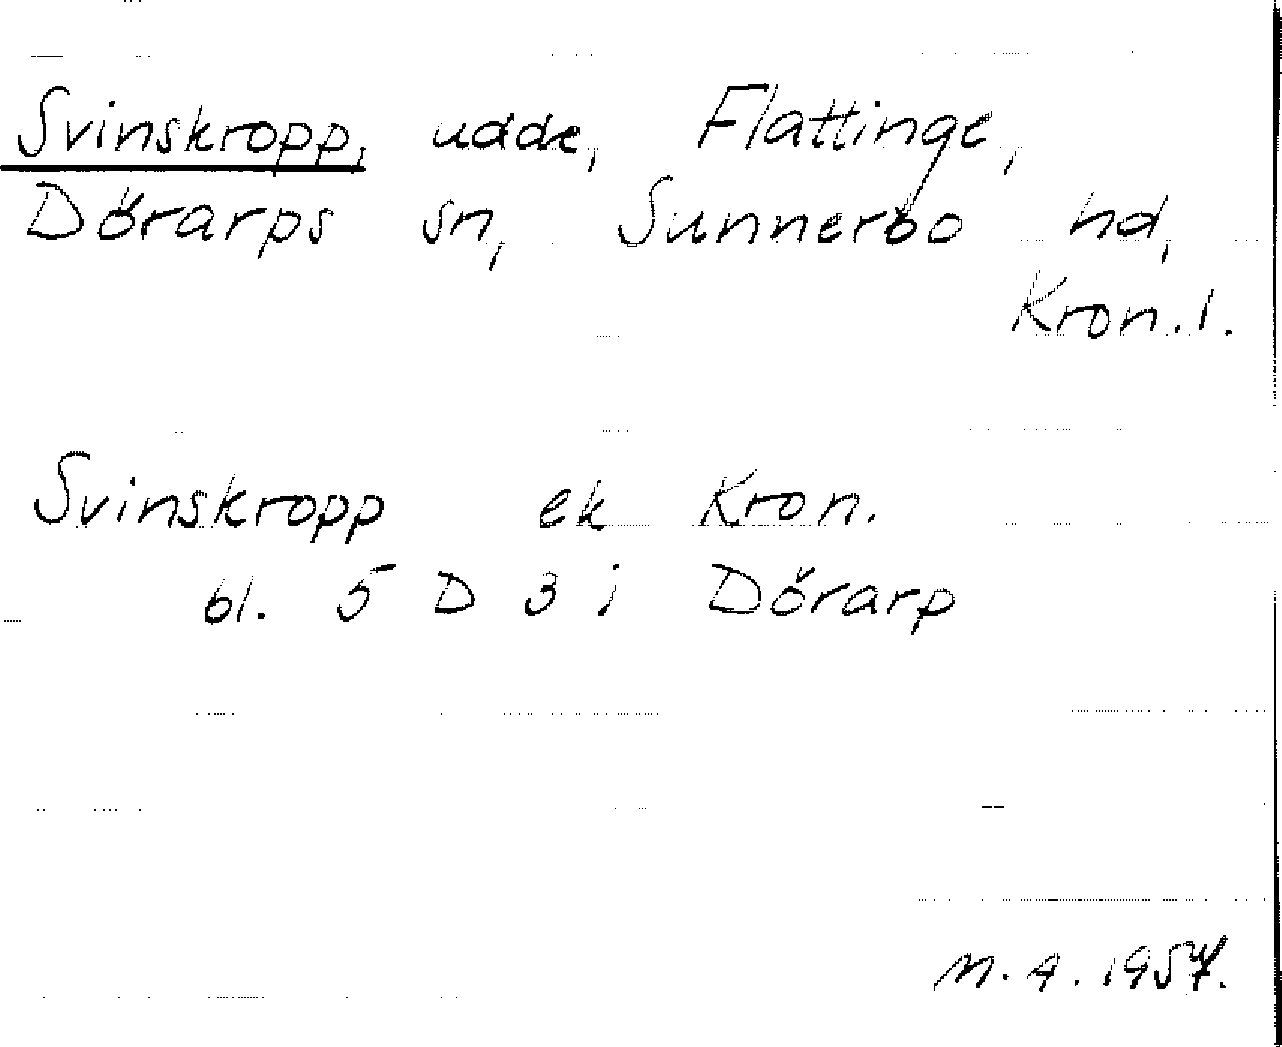 Svinskropp, udde, Flattinge,
Dörarps sn, Sunnerbo hd,
Kron.l.
Svinskropp ek Kron.
bl. 5 D 3 i Dörarp
M.A. 1957.